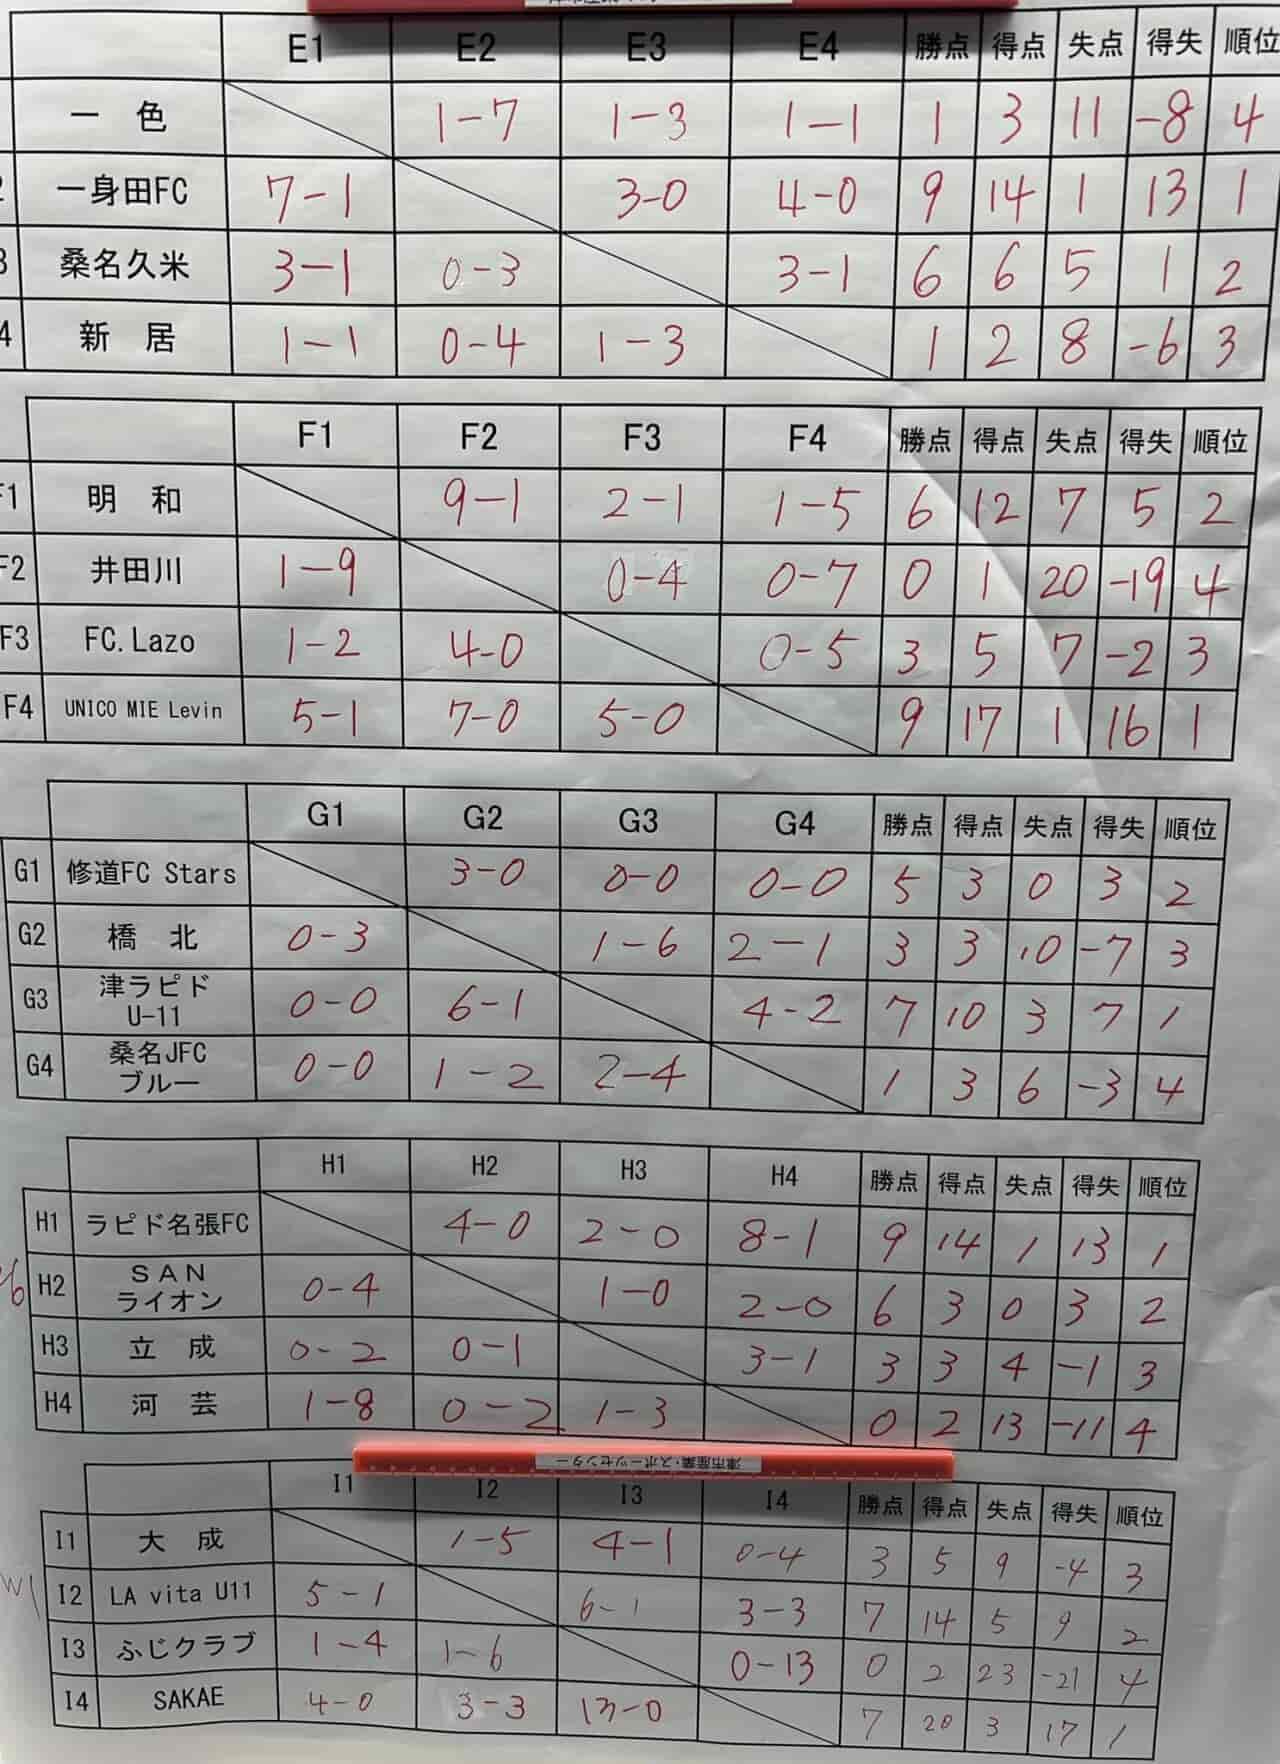 E1 E2 E3 E4 勝点 得点 失点 得失 順位
一 色 1-7 1-3 1-1 1 3 11 -8 4
一身田FC 7-1 3-0 4-0 9 14 1 13 1
3 桑名久米 3-1 0-3 3-1 6 6 5 1 2
4 新 居 1-1 0-4 1-3 1 2 8 -6 3
F1 F2 F3 F4 勝点 得点 失点 得失 順位
F1 明 和 9-1 2-1 1-5 6 12 7 5 2
F2 井田川 1-9 0-4 0-7 0 1 20 -19 4
F3 FC.Lazo 1-2 4-0 0-5 3 5 7 -2 3
F4 UNICO MIE Levin 5-1 7-0 5-0 9 17 1 16 1
G1 G2 G3 G4 勝点 得点 失点 得失 順位
G1 修道FC Stars 3-0 0-0 0-0 5 3 0 3 2
G2 橋 北 0-3 1-6 2-1 3 3 10 -7 3
G3 津ラピド
U-11 0-0 6-1 4-2 7 10 3 7 1
G4 桑名JFC
ブルー 0-0 1-2 2-4 1 3 6 -3 4
H1 H2 H3 H4 勝点 得点 失点 得失 順位
H1 ラピド名張FC 4-0 2-0 8-1 9 14 1 13 1
H2 SAN
ライオン 0-4 1-0 2-0 6 3 0 3 2
H3 立 成 0-2 0-1 3-1 3 3 4 -1 3
H4 河 芸 1-8 0-2 1-3 0 2 13 -11 4
津市産業・スポーツセンター
I1 I2 I3 I4 勝点 得点 失点 得失 順位
I1 大 成 1-5 4-1 0-4 3 5 9 -4 3
I2 LA vita U11 5-1 6-1 3-3 7 14 5 9 2
I3 ふじクラブ 1-4 1-6 0-13 0 2 23 -21 4
I4 SAKAE 4-0 3-3 13-0 7 20 3 17 1